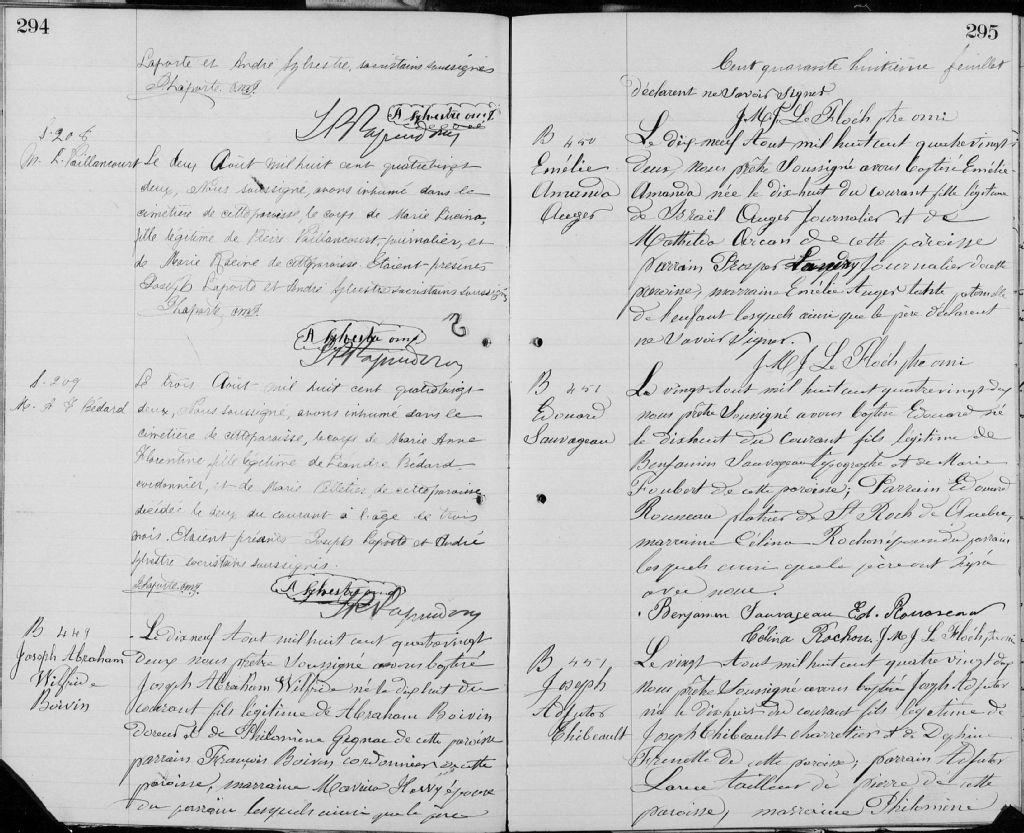 294
Laporte et André Sylvestre, sacristains soussignés
J Laporte omf.
A Sylvestre omf.
S. 208
M. L. Vaillancourt
Le deux Août mil huit cent quatrevingt
deux, Nous soussigné, avons inhumé dans le
cimetière de cette paroisse, le corps de Marie Lucina,
fille légitime de Pierre Vaillancourt journalier, et
de Marie Racine de cette paroisse. Etaient présents
Joseph Laporte et André Sylvestre sacristains soussignés
J Laporte omf.
A Sylvestre omf
S. 209
M. A F Bédard
Le trois Août mil huit cent quatrevingt
deux, Nous soussigné, avons inhumé dans le
cimetière de cette paroisse, le corps de Marie Anne
Florentine fille légitime de Léandre Bédard
cordonnier, et de Marie Pelletier de cette paroisse
décédée le deux du courant à l'âge de trois
mois. Etaient présents Joseph Laporte et André
Sylvestre sacristains soussignés.
J Laporte omf.
A Sylvestre omf
B 449
Joseph Abraham
Wilfride
Boivin
Le dix neuf Aout mil huit cent quatrevingt
deux nous prêtre soussigné avons baptisé
Joseph Abraham Wilfride né le dix huit du
courant fils légitime de Abraham Boivin
et de Philomène Gagnac de cette paroisse
parrain François Boivin cordonnier de cette
paroisse, marraine épouse
du parrain lesquels ainsi que le père
295
Cent quarante huitième feuillet
déclarent ne savoir signer
J M J Le Floch ptre omi
B 450
Emélie
Amanda
Auger
Le dix-neuf Aout mil huit cent quatrevingt
deux, nous prêtre soussigné avons baptisé Emélie-
Amanda née le dix-huit du courant fille légitime
de Israël Auger journalier et de
Mathilda Arcan de cette paroisse
parrain Prosper Landry journalier de cette
paroisse, marraine Emélie Auger tante paternelle
de l'enfant lesquels ainsi que le père déclarent
ne savoir signer.
J M J Le Floch ptre omi
B 451
Edouard
Sauvageau
Le vingt Aout mil huit cent quatre vingt deux
nous prêtre soussigné avons baptisé Edouard né
le dixhuit du courant fils légitime de
Benjamin Sauvageau typographe et de Marie
Foubert de cette paroisse; Parrain Edouard
Rousseau platrier de St Roch de Québec,
marraine Célina Rochon épouse du parrain
lesquels ainsi que le père ont signé
avec nous.
Benjamin Sauvageau Ed. Rousseau
Célina Rochon J M J Le Floch, ptre omi
B 451
Joseph
Adjutor
Thibeault
Le vingt Aout mil huit cent quatre vingt deux
nous prêtre soussigné avons baptisé Joseph Adjutor
né le dixhuit du courant fils légitime de
Joseph Thibeault charretier et de Delphine
Frenette de cette paroisse; parrain Adjutor
tailleur de pierre de cette
paroisse, marraine Philomène